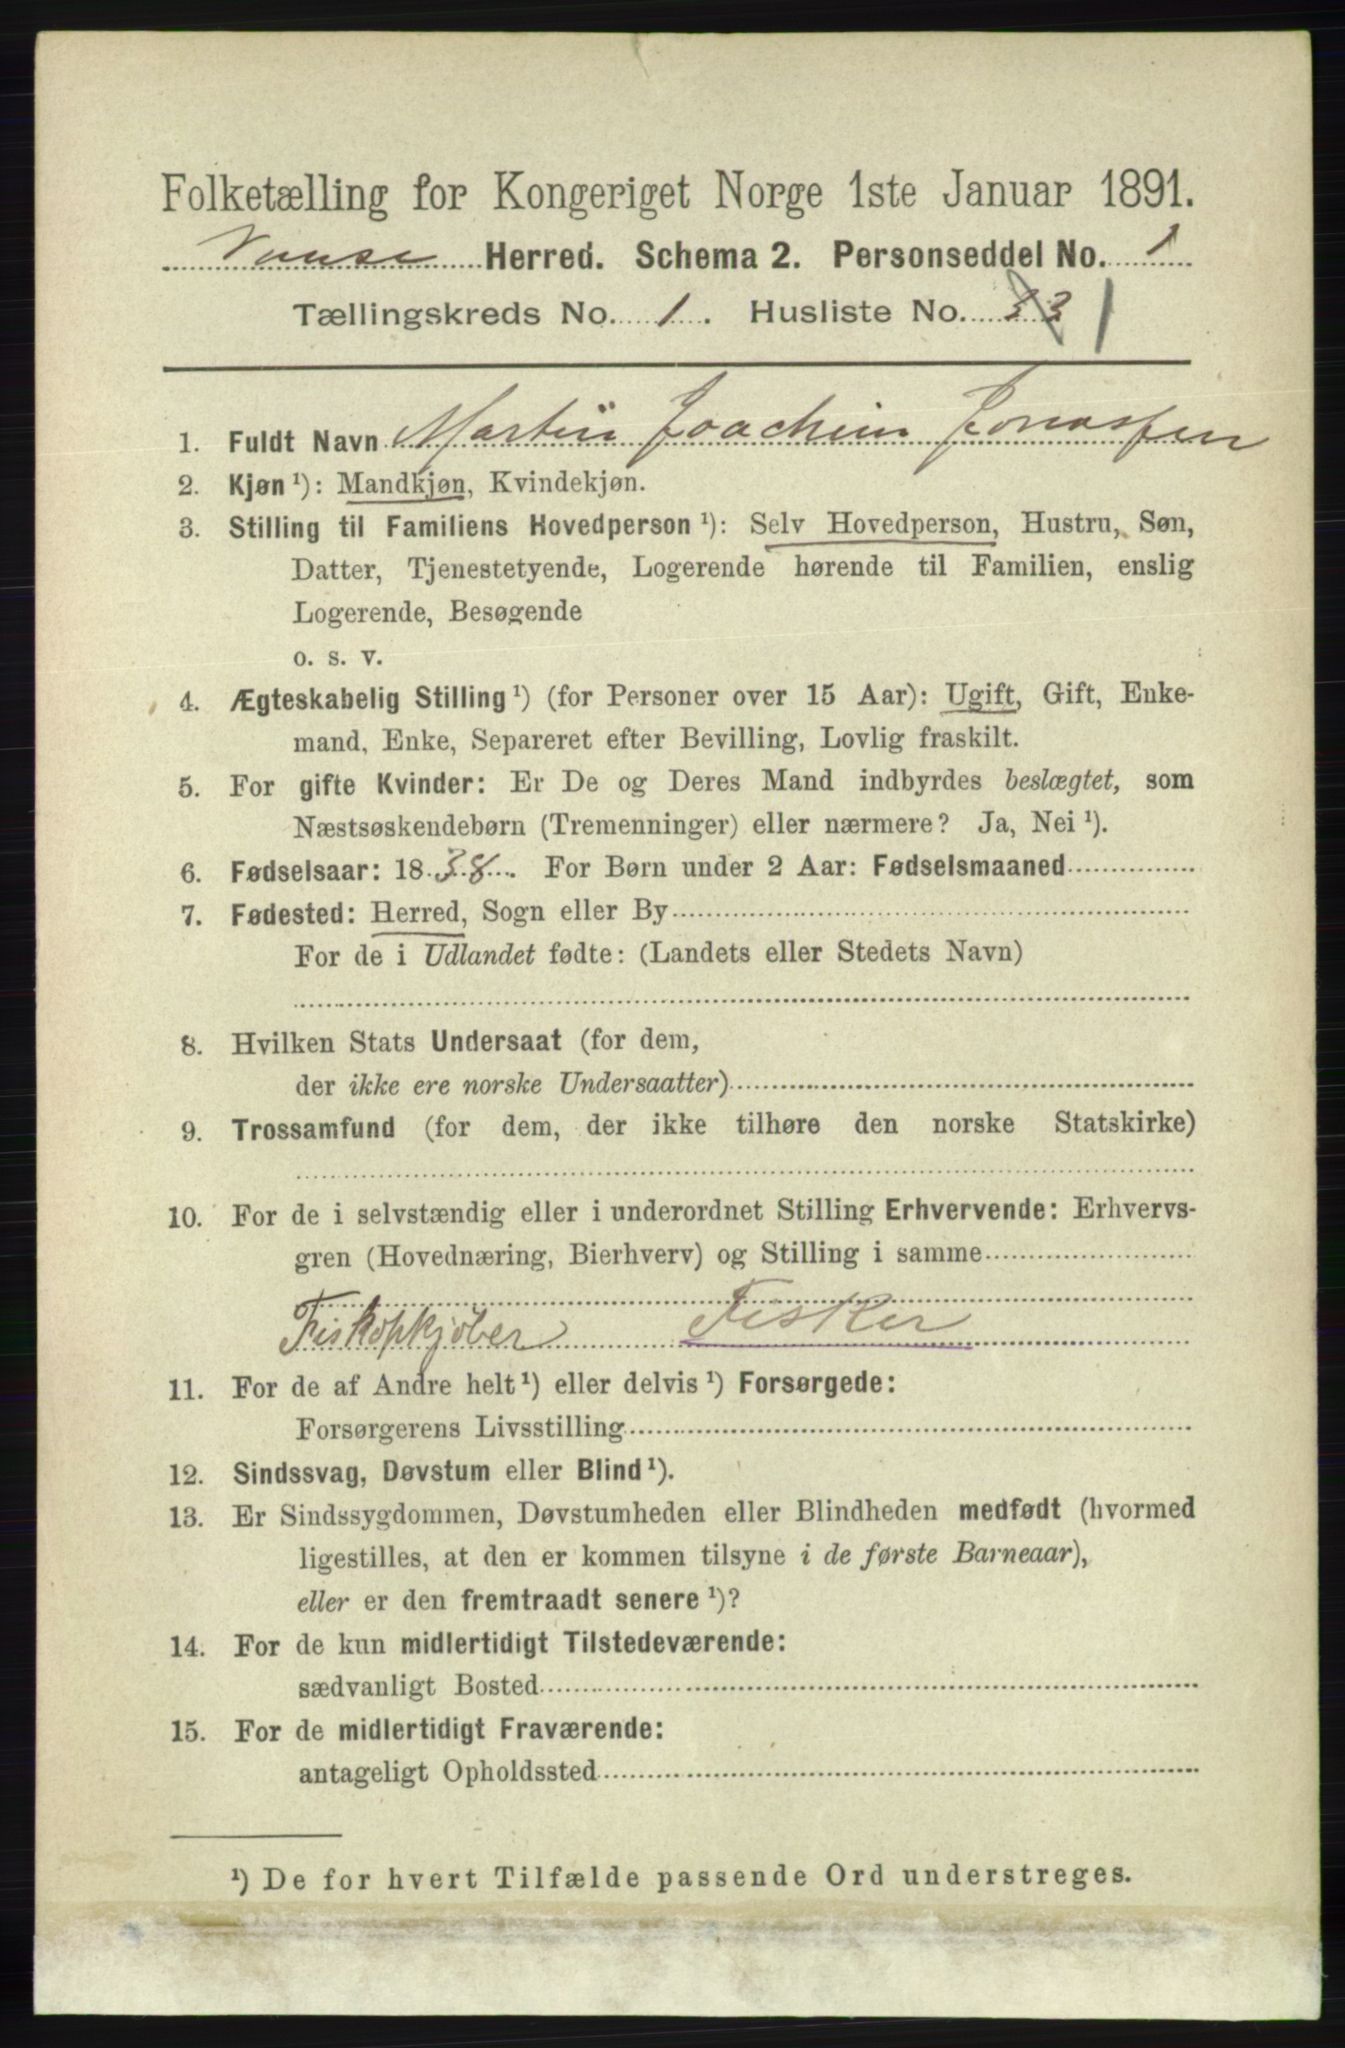 Folketælling for Kongeriget Norge 1ste Januar 1891.
Vanse Herred. Schema 2. Personseddel No. 1
Tællingskreds No. 1. Husliste No. 33 1
1. Fuldt Navn Martin Joachim Jonassen
2. Kjøn ¹): Mandkjøn, Kvindekjøn.
3. Stilling til Familiens Hovedperson ¹): Selv Hovedperson, Hustru, Søn,
Datter, Tjenestetyende, Logerende hørende til Familien, enslig
Logerende, Besøgende
o. s. v.
4. Ægteskabelig Stilling ¹) (for Personer over 15 Aar): Ugift, Gift, Enke-
mand, Enke, Separeret efter Bevilling, Lovlig fraskilt.
5. For gifte Kvinder: Er De og Deres Mand indbyrdes beslægtet, som
Næstsøskendebørn (Tremenninger) eller nærmere? Ja, Nei ¹).
6. Fødselsaar: 1838. For Børn under 2 Aar: Fødselsmaaned
7. Fødested: Herred, Sogn eller By
For de i Udlandet fødte: (Landets eller Stedets Navn)
8. Hvilken Stats Undersaat (for dem,
der ikke ere norske Undersaatter)
9. Trossamfund (for dem, der ikke tilhøre den norske Statskirke)
10. For de i selvstændig eller i underordnet Stilling Erhvervende: Erhvervs-
gren (Hovednæring, Bierhverv) og Stilling i samme
Fiskopkjøber Fisker
11. For de af Andre helt ¹) eller delvis ¹) Forsørgede:
Forsørgerens Livsstilling
12. Sindssvag, Døvstum eller Blind ¹).
13. Er Sindssygdommen, Døvstumheden eller Blindheden medfødt (hvormed
ligestilles, at den er kommen tilsyne i de første Barneaar),
eller er den fremtraadt senere ¹)?
14. For de kun midlertidigt Tilstedeværende:
sædvanligt Bosted
15. For de midlertidigt Fraværende:
antageligt Opholdssted
¹) De for hvert Tilfælde passende Ord understreges.